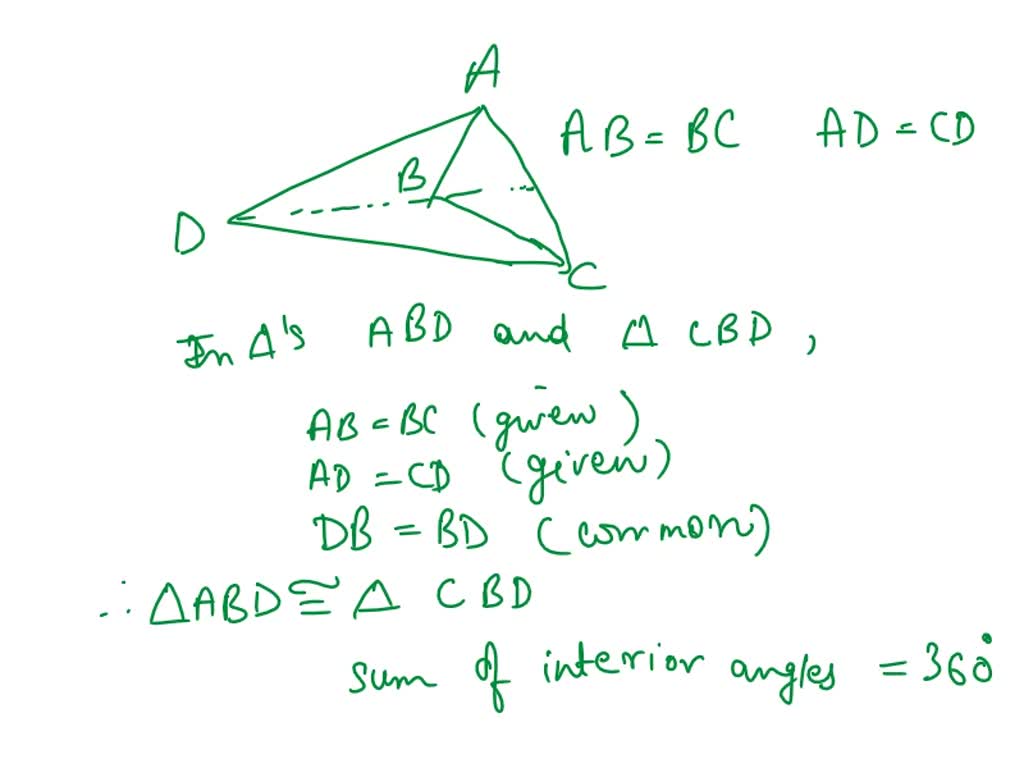 A
AB = BC    AD = CD
B
D
C
In Δ's ABD and Δ CBD ,
AB = BC (given)
AD = CD (given)
DB = BD (common)
∴ ΔABD ≅ Δ CBD
sum of interior angles = 360°